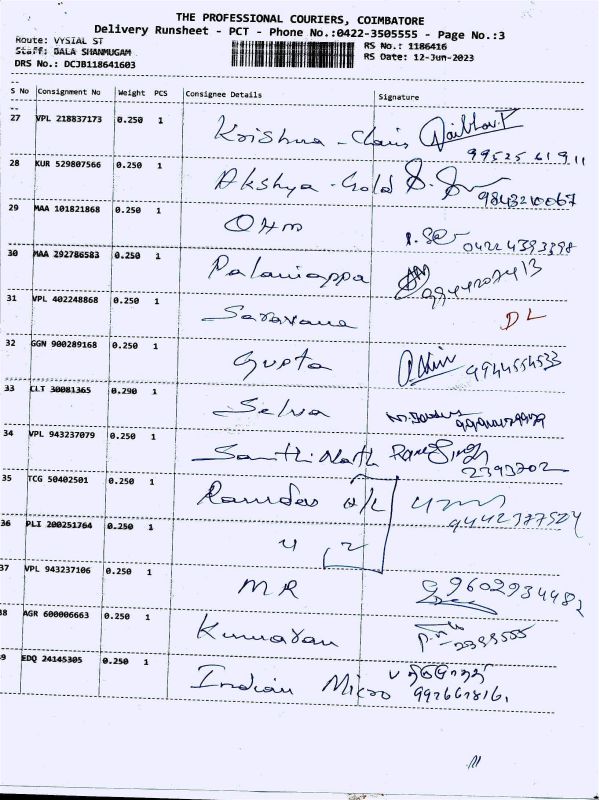 THE PROFESSIONAL COURIERS, COIMBATORE
Delivery Runsheet - PCT - Phone No.:0422-3505555 - Page No.:3
Route: VYSIAL ST
RS No.: 1186416
Staff: BALA SHANMUGAM
RS Date: 12-Jun-2023
DRS No.: DCJB118641603
S No Consignment No Weight PCS Consignee Details Signature
27 VPL 218837173 0.250 1 Krishna - Chains Vaibhav.T
99525 61911
28 KUR 529807566 0.250 1 Akshya - Gold
9843210067
29 MAA 101821868 0.250 1 OHM
04224393398
30 MAA 292786583 0.250 1 Palaniappa
9944207413
31 VPL 402248868 0.250 1 Saravana DL
32 GGN 900289168 0.250 1 Gupta
9944554533
33 CLT 30081365 0.290 1 Selva
34 VPL 943237079 0.250 1 Santhi Nath
2393202
35 TCG 50402501 0.250 1 Ramdev
9442377524
36 PLI 200251764 0.250 1 4 2
37 VPL 943237106 0.250 1 MR 9602934482
38 AGR 600006663 0.250 1 Kumaran
2399555
39 EDQ 24145305 0.250 1 Indian Micro